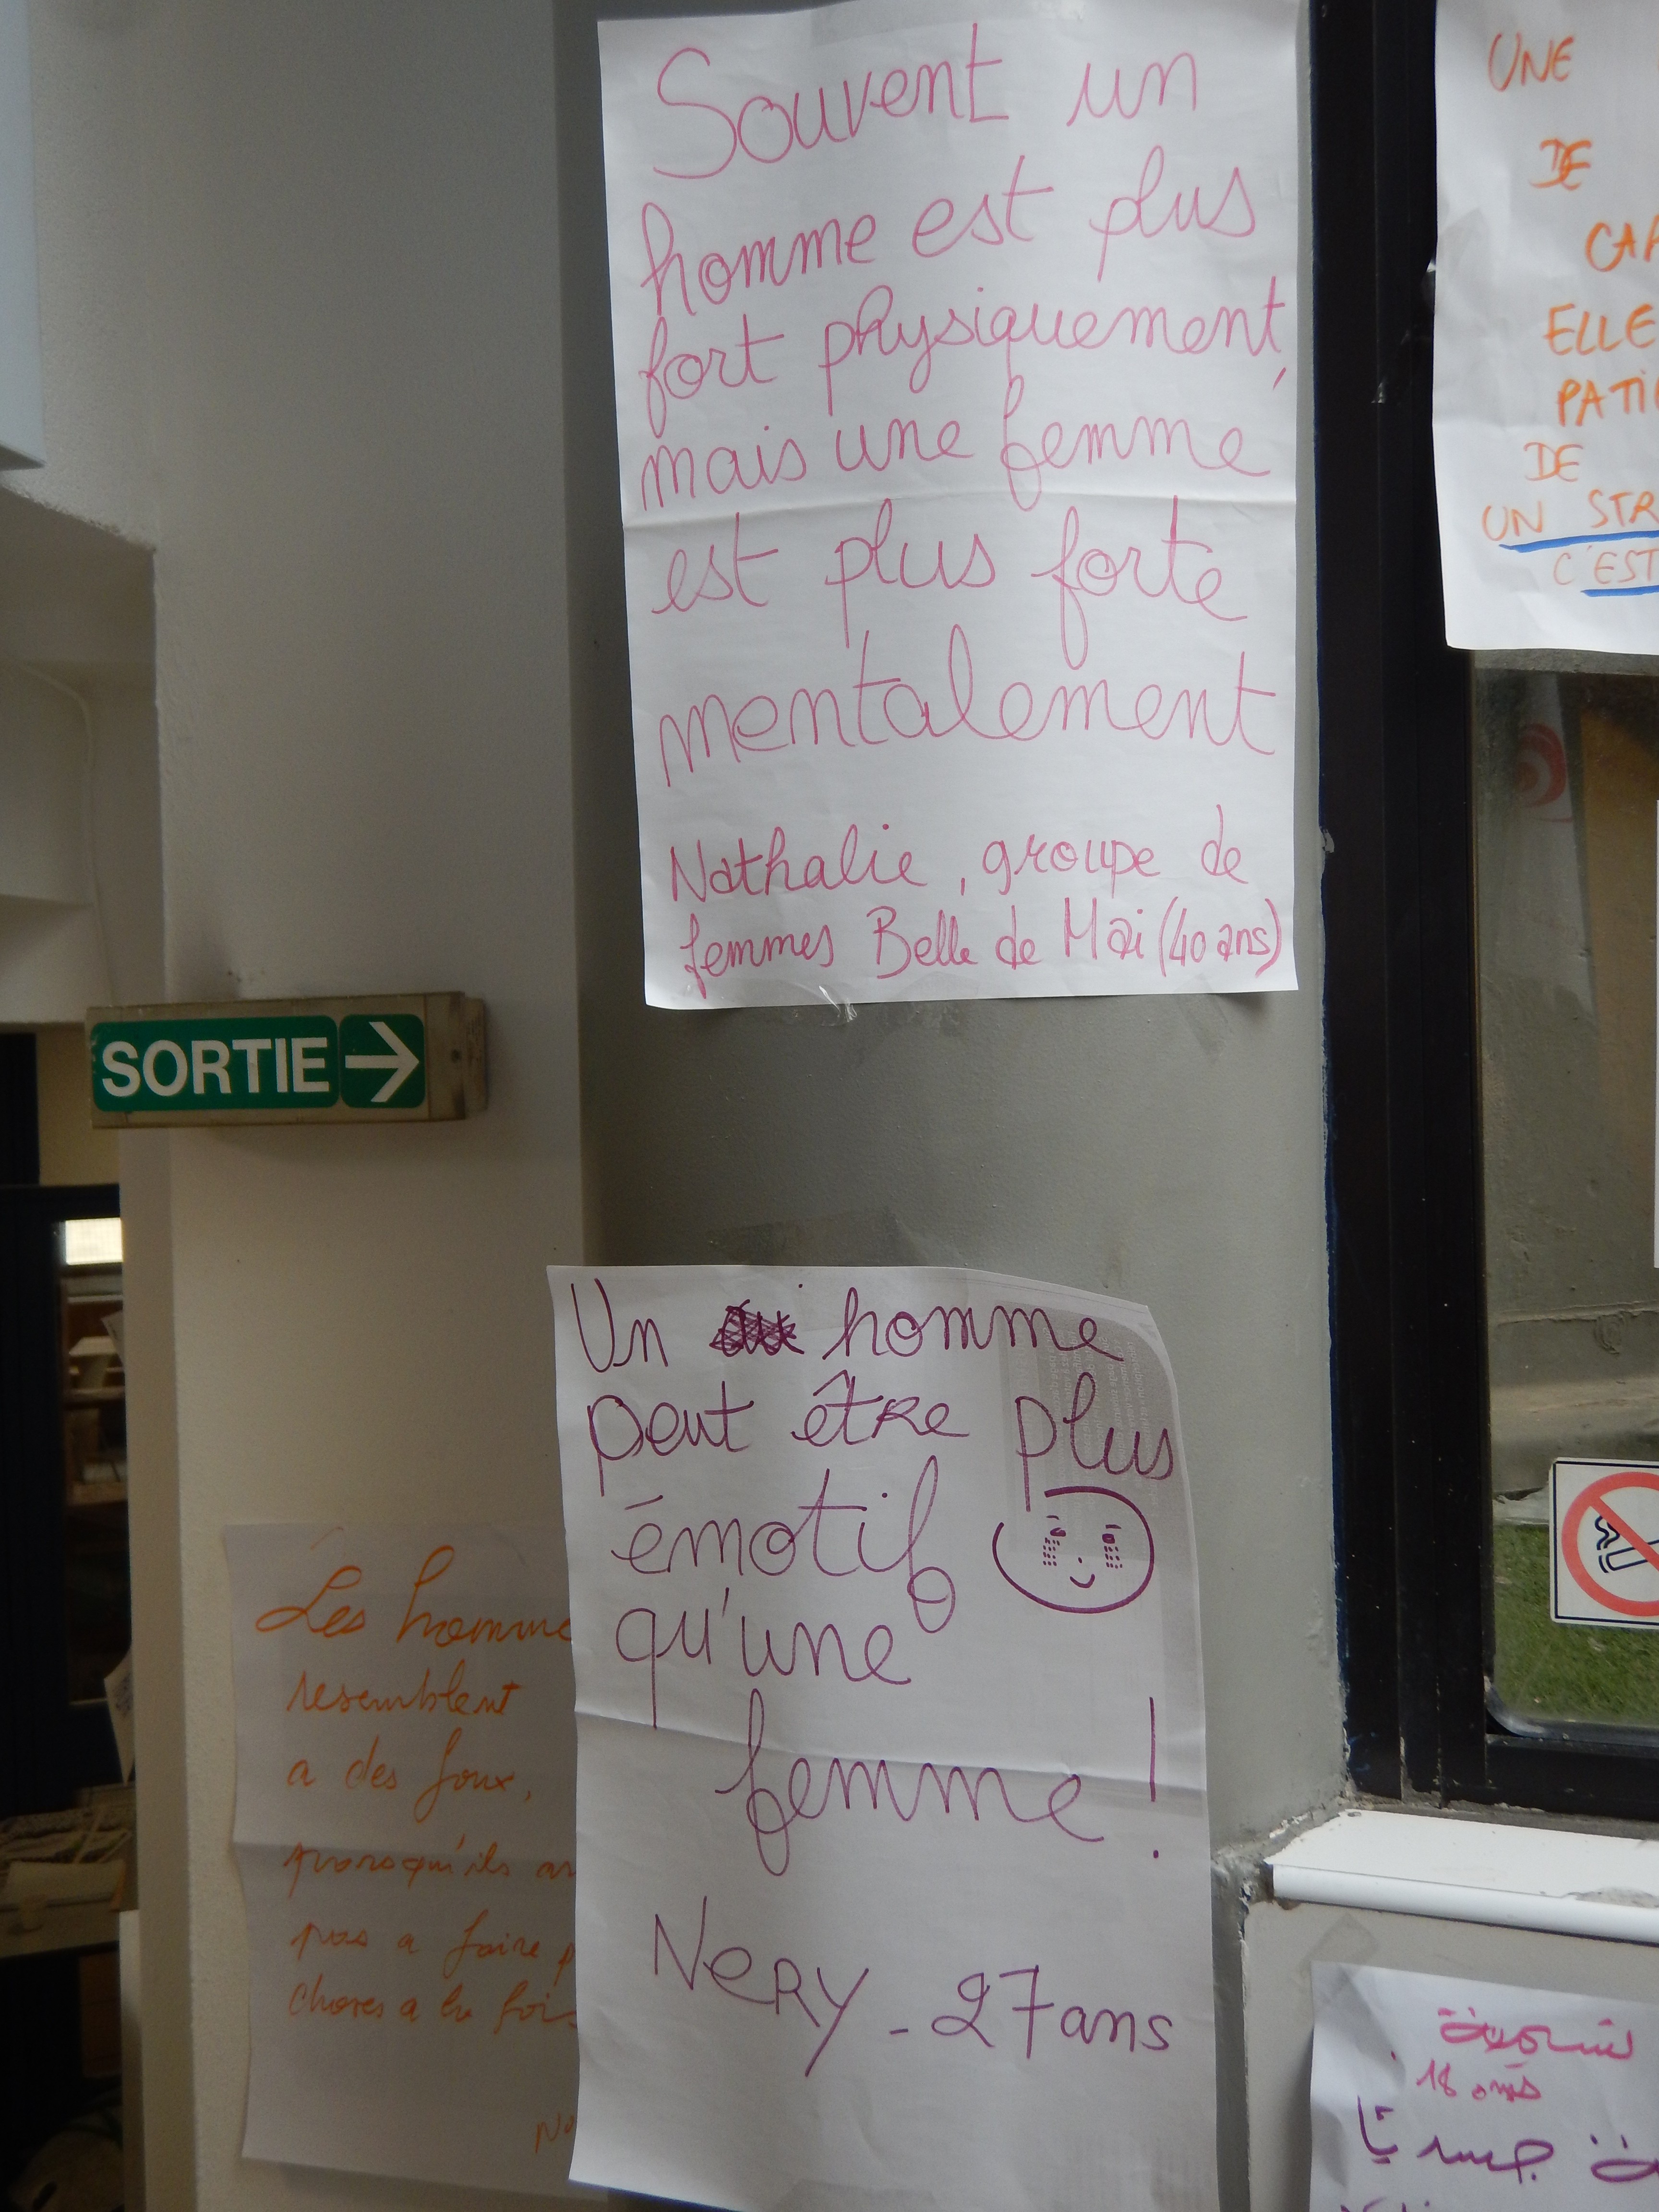 Souvent un
homme est plus
fort physiquement,
mais une femme
est plus forte
mentalement
Nathalie, groupe de
femmes Belle de Mai (40 ans)
UNE
DE
ELLE
DE
UN STR
C'EST
SORTIE
Un homme
peut être plus
émotif
qu'une
femme !
NERY - 27 ans
Les homme
resemblent
a des foux,
parsqu'ils
pas a faire p
choses a la fois
18 ans